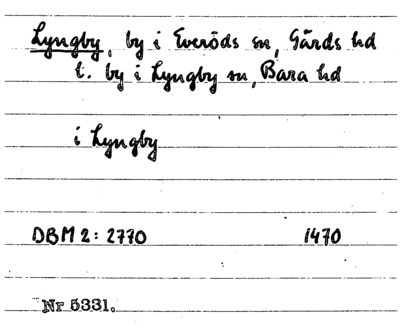 Lyngby, by i Everöds sn, Gärds hd
t. by i Lyngby sn, Bara hd
i Lyngby
DBM 2: 2770 1470
Nr 5331.